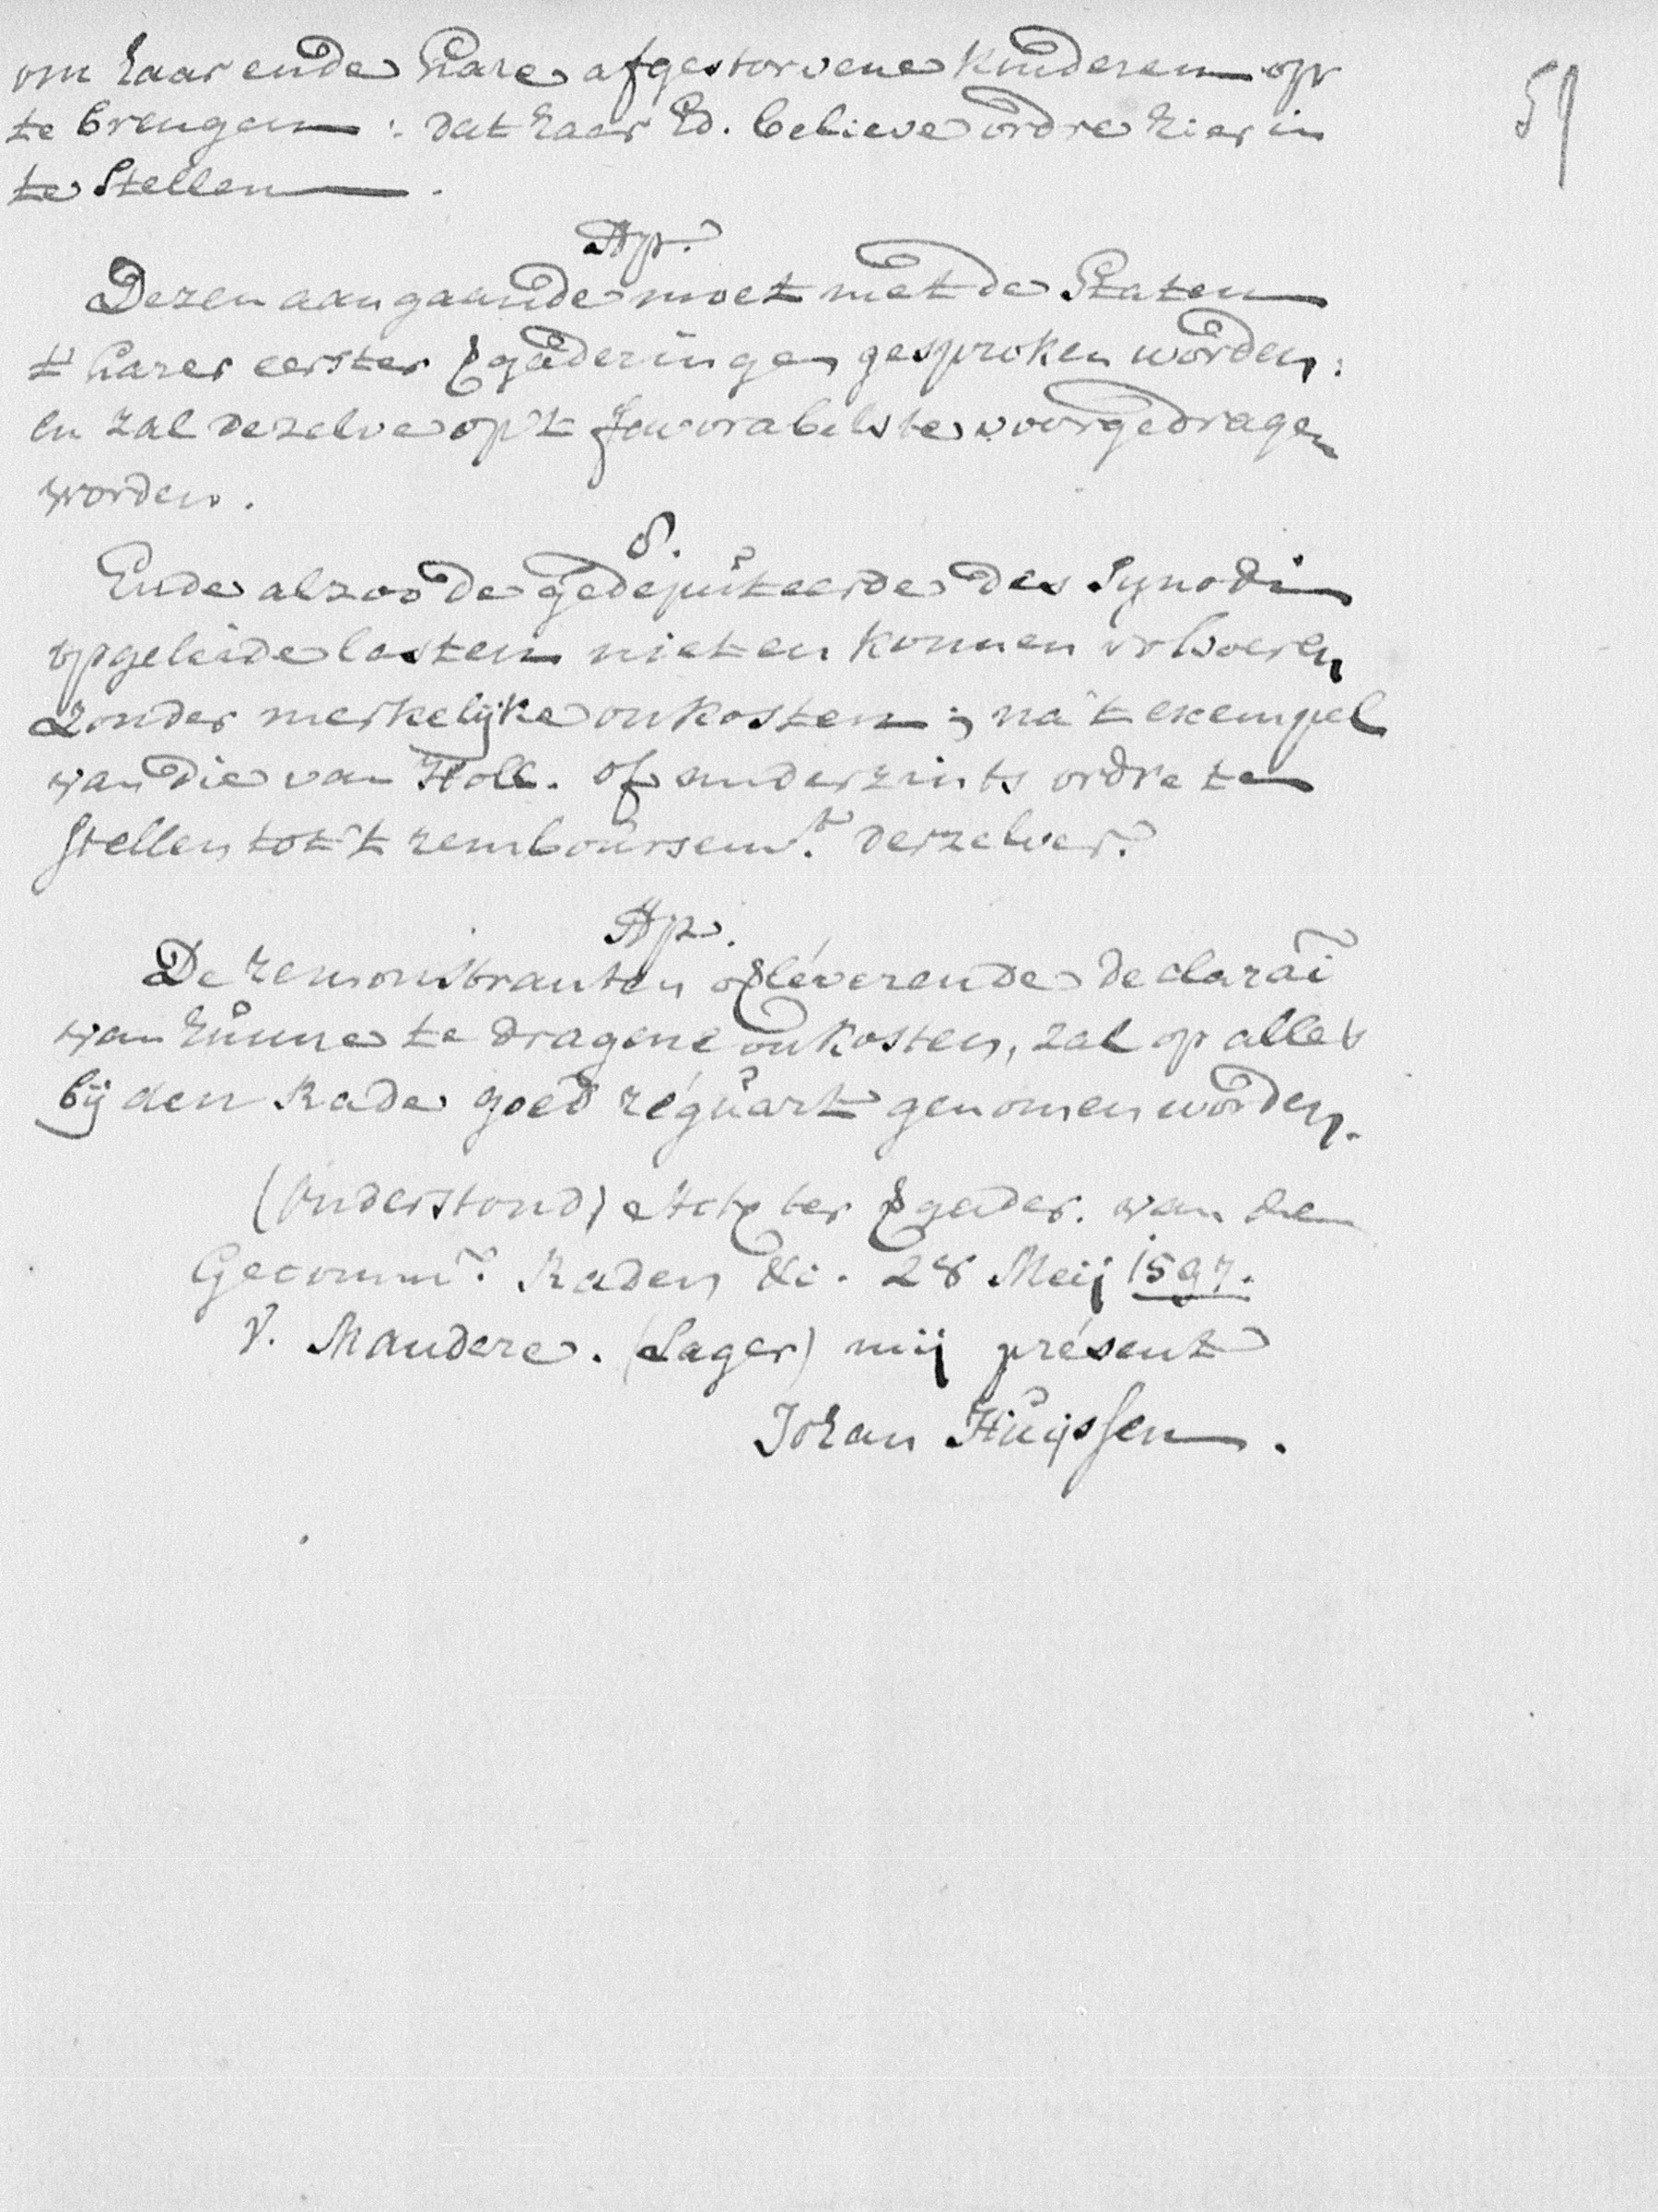 om haar ende hare afgestorvene kinderen op
59
te brengen : dat haar Ed. believe ordre hier in
te stellen .
Ap.
Dezen aangaande moet met de Staten
t' harer eerster vgaderingen gesproken worden:
en zal dezelve op 't favorabelste voorgedragen
worden.
8.
Ende alzoo de gedeputeerde des Synodi
opgeleide lasten niet en konnen volvoeren
zonder merkelijke onkosten ; na 't exempel
van die van Holl. of anderzints ordre te
stellen tot 't remboursemt. derzelver.
Ap.
De remonstrantenovleverende declarai
van hunne te dragene onkosten, zal op alles
bij den Rade goed reguart genomen worden.
(Onderstond) Actū ter vgader. van den
Gecomm. Raden &c. 28 Meij 1597.
V. Mandere. (Lager) mij présent
Johan Huijssen .